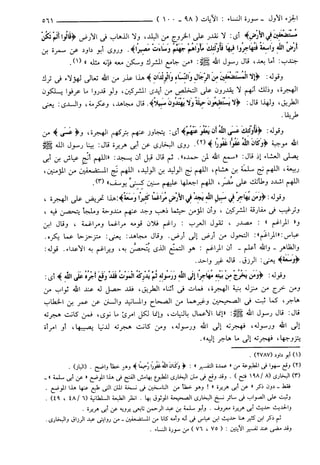 الجزء الأول - سورة النساء: الآيات (٩٨ - ١٠٠) ٥٦١
مُسْتَضْعَفِينَ فِي الْأَرْضِ﴾ أي: لا نقدر على الخروج من البلد، ولا الذهاب في الأرض ﴿قَالُوا أَلَمْ تَكُنْ
أَرْضُ اللَّهِ وَاسِعَةً فَتُهَاجِرُوا فِيهَا فَأُولَئِكَ مَأْوَاهُمْ جَهَنَّمُ وَسَاءَتْ مَصِيرًا﴾. وروى أبو داود عن سمرة بن
جندب: أما بعد، قال رسول الله ﷺ: «من جامع المشرك وسكن معه فإنه مثله» (١).
وقوله: ﴿إِلَّا الْمُسْتَضْعَفِينَ مِنَ الرِّجَالِ وَالنِّسَاءِ وَالْوِلْدَانِ﴾ هذا عذر من الله تعالى لهؤلاء في ترك
الهجرة، وذلك أنهم لا يقدرون على التخلص من أيدي المشركين، ولو قدروا ما عرفوا يسلكون
الطريق، ولهذا قال: ﴿لَا يَسْتَطِيعُونَ حِيلَةً وَلَا يَهْتَدُونَ سَبِيلًا﴾. قال مجاهد، وعكرمة، والسدي: يعني
طريقا.
وقوله: ﴿فَأُولَئِكَ عَسَى اللَّهُ أَنْ يَعْفُوَ عَنْهُمْ﴾ أي: يتجاوز عنهم بتركهم الهجرة، و﴿عَسَى﴾ من
الله موجبة ﴿وَكَانَ اللَّهُ عَفُوًّا غَفُورًا﴾ (٢). روى البخاري عن أبي هريرة قال: بينا رسول الله ﷺ
يصلي العشاء إذ قال: «سمع الله لمن حمده». ثم قال قبل أن يسجد: «اللهم أنج عياش بن أبي
ربيعة، اللهم نج سلمة بن هشام، اللهم نج الوليد بن الوليد، اللهم نج المستضعفين من المؤمنين،
اللهم اشدد وطأتك على مضر، اللهم اجعلها عليهم سنين كسني يوسف» (٣).
وقوله: ﴿وَمَنْ يُهَاجِرْ فِي سَبِيلِ اللَّهِ يَجِدْ فِي الْأَرْضِ مُرَاغَمًا كَثِيرًا وَسَعَةً﴾: هذا تحريض على الهجرة،
وترغيب في مفارقة المشركين، وأن المؤمن حيثما ذهب وجد عنهم مندوحة وملجأ يتحصن فيه،
و«المراغم»: مصدر، تقول العرب: راغم فلان قومه مراغما ومراغمة، وقال ابن
عباس: «المراغم»: التحول من أرض إلى أرض. وقال مجاهد: يعني: متزحزحا عما يكره.
والظاهر - والله أعلم - أن المراغم: هو التمنع الذي يُتحصن به، ويراغم به الأعداء. قوله:
﴿وَسَعَةً﴾ يعني: الرزق. قاله غير واحد.
وقوله: ﴿وَمَنْ يَخْرُجْ مِنْ بَيْتِهِ مُهَاجِرًا إِلَى اللَّهِ وَرَسُولِهِ ثُمَّ يُدْرِكْهُ الْمَوْتُ فَقَدْ وَقَعَ أَجْرُهُ عَلَى اللَّهِ﴾ أي:
ومن خرج من منزله بنية الهجرة، فمات في أثناء الطريق، فقد حصل له عند الله ثواب من
هاجر، كما ثبت في الصحيحين وغيرهما من الصحاح والمسانيد والسنن عن عمر بن الخطاب
قال: قال رسول الله ﷺ: «إنما الأعمال بالنيات، وإنما لكل امرئ ما نوى، فمن كانت هجرته
إلى الله ورسوله، فهجرته إلى الله ورسوله، ومن كانت هجرته لدنيا يصيبها، أو امرأة
يتزوجها، فهجرته إلى ما هاجر إليه».
(١) أبو داود (٢٧٨٧).
(٢) وقع سهوا في المطبوعة من «عمدة التفسير»: ﴿وَكَانَ اللَّهُ غَفُورًا رَحِيمًا﴾ وهو خطأ واضح. (الباز).
(٣) البخاري (٨ / ١٩٨ فتح).